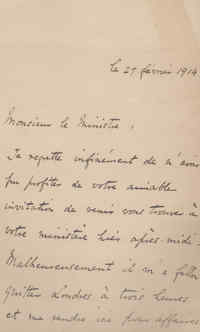 le 27 février 1914
Monsieur le Ministre,
Je regrette infiniment de n'avoir
pu profiter de votre aimable
invitation de venir vous trouver à
votre ministère hier après-midi.
Malheureusement il m'a fallu
quitter Londres à trois heures
et me rendre ici pour affaires